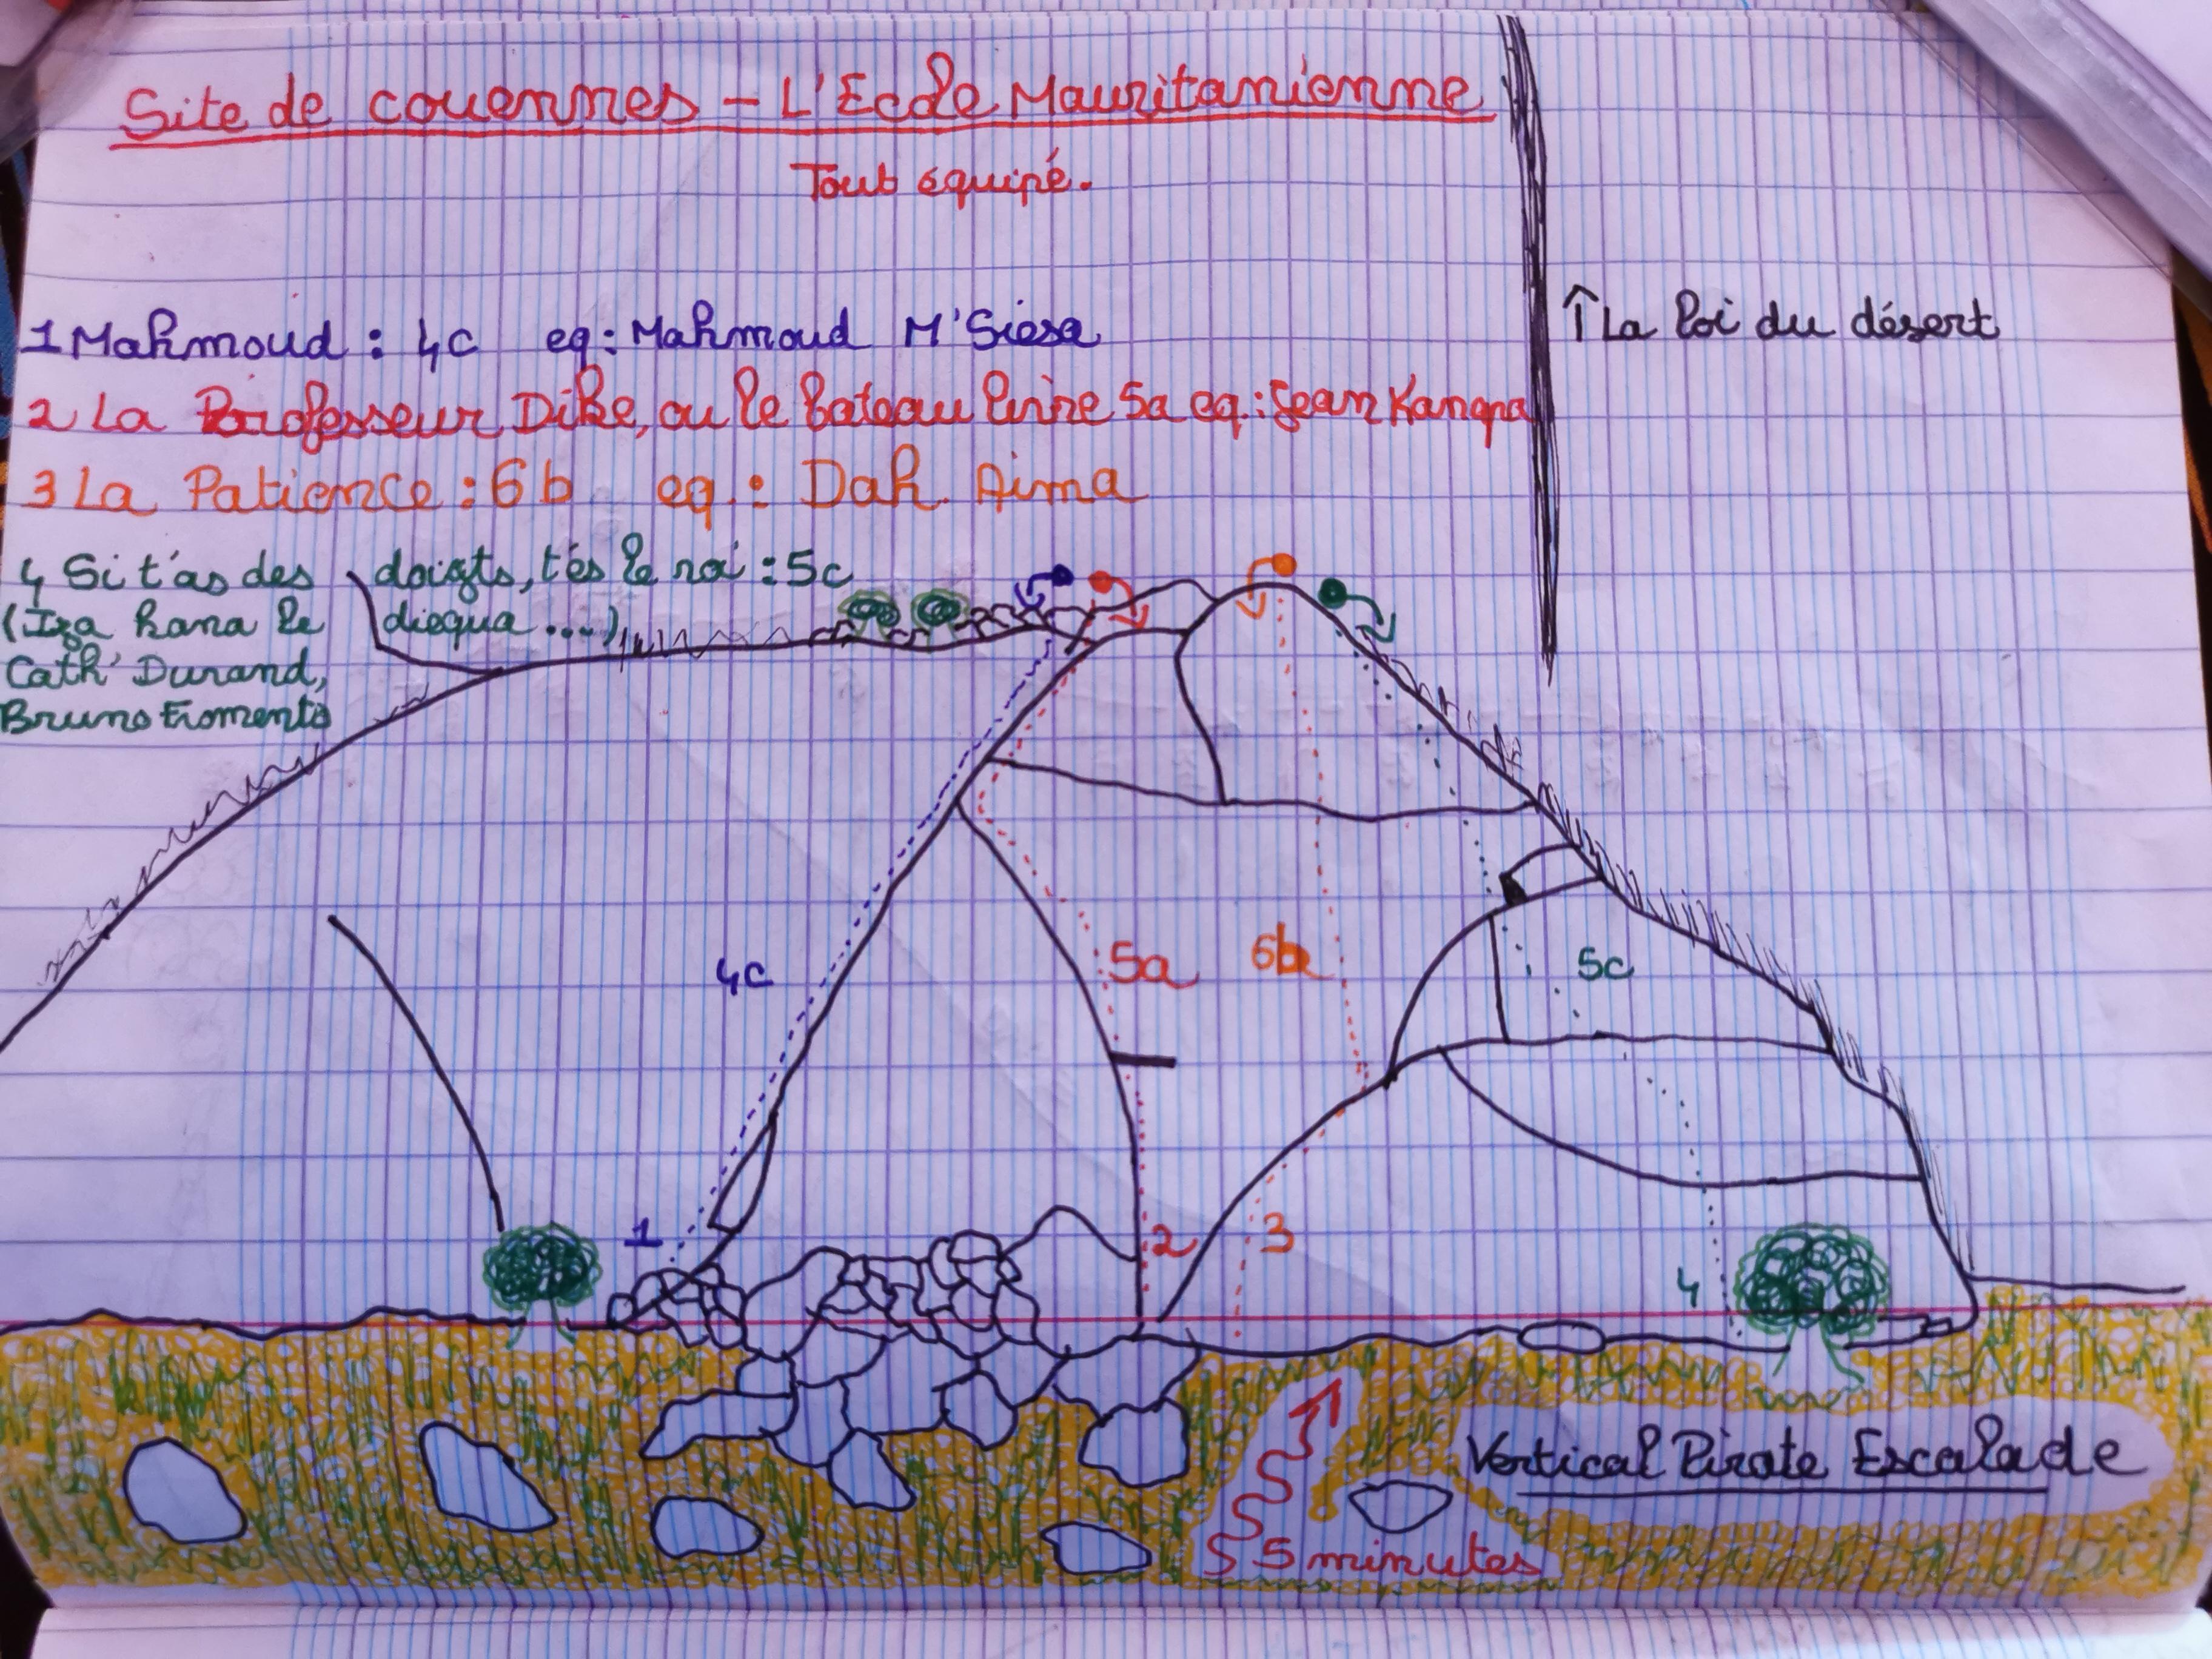 Site de couennes - L'Ecole Mauritanienne
Tout équipé.
1 Mahmoud : 4c eq : Mahmoud M'Siesa
↑ La loi du désert
2 La Professeur Dike, ou le bateau livre 5a eq. : Jean Kanapa
3 La Patience : 6b eq. : Dah Aima
4 Si t'as des doigts, t'es le roi : 5c
(Iza kana le diequa ...)
Cath' Durand,
Bruno Fromento
4c
5a
6b
5c
1
2
3
4
Vertical Pirate Escalade
5 minutes